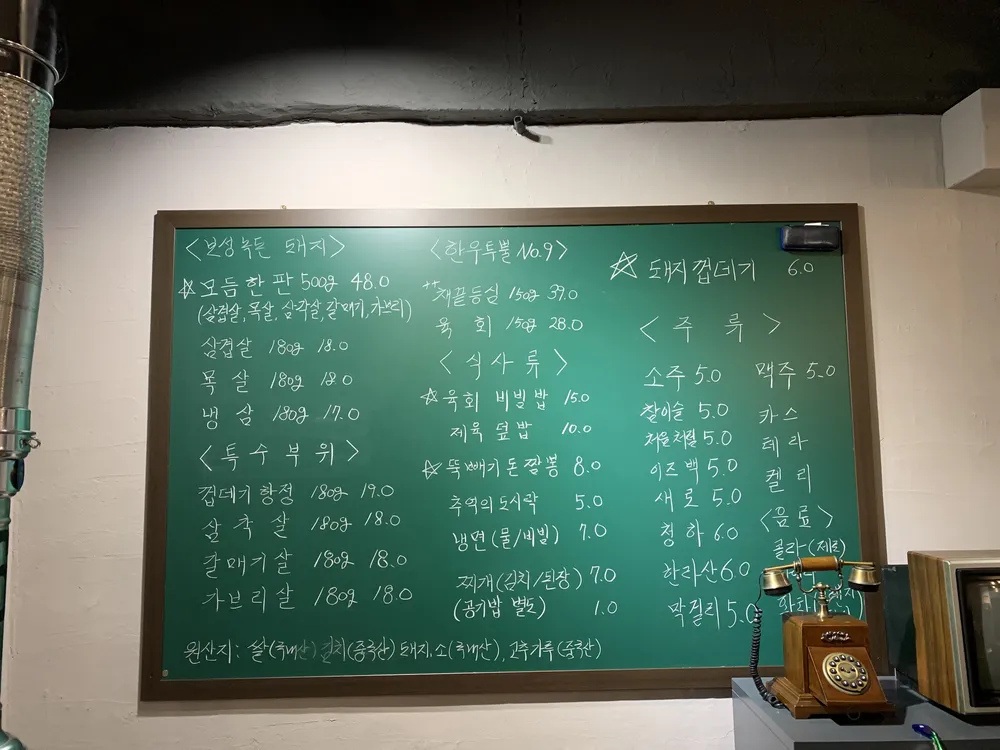 <보성녹돈 돼지>
☆모듬한판 500g 48.0
(삼겹살, 목살, 삼각살, 갈매기, 가브리)
삼겹살 180g 18.0
목살 180g 18.0
냉삼 180g 17.0
<특수부위>
껍데기항정 180g 19.0
삼각살 180g 18.0
갈매기살 180g 18.0
가브리살 180g 18.0
<한우투뿔 No.9>
++채끝등심 150g 39.0
육회 150g 28.0
<식사류>
☆육회 비빌밥 15.0
제육 덮밥 10.0
☆뚝빼기 돈짬뽕 8.0
추억의 도시락 5.0
냉면(물/비빔) 7.0
찌개(김치/된장) 7.0
(공기밥 별도) 1.0
☆돼지껍데기 6.0
<주류>
소주 5.0
참이슬 5.0
처음처럼 5.0
이즈백 5.0
새로 5.0
청하 6.0
한라산 6.0
막걸리 5.0
맥주 5.0
카스
테라
켈리
<음료>
콜라(제로)
원산지: 쌀(국내산) 김치(중국산) 돼지, 소(국내산), 고추가루(중국산)